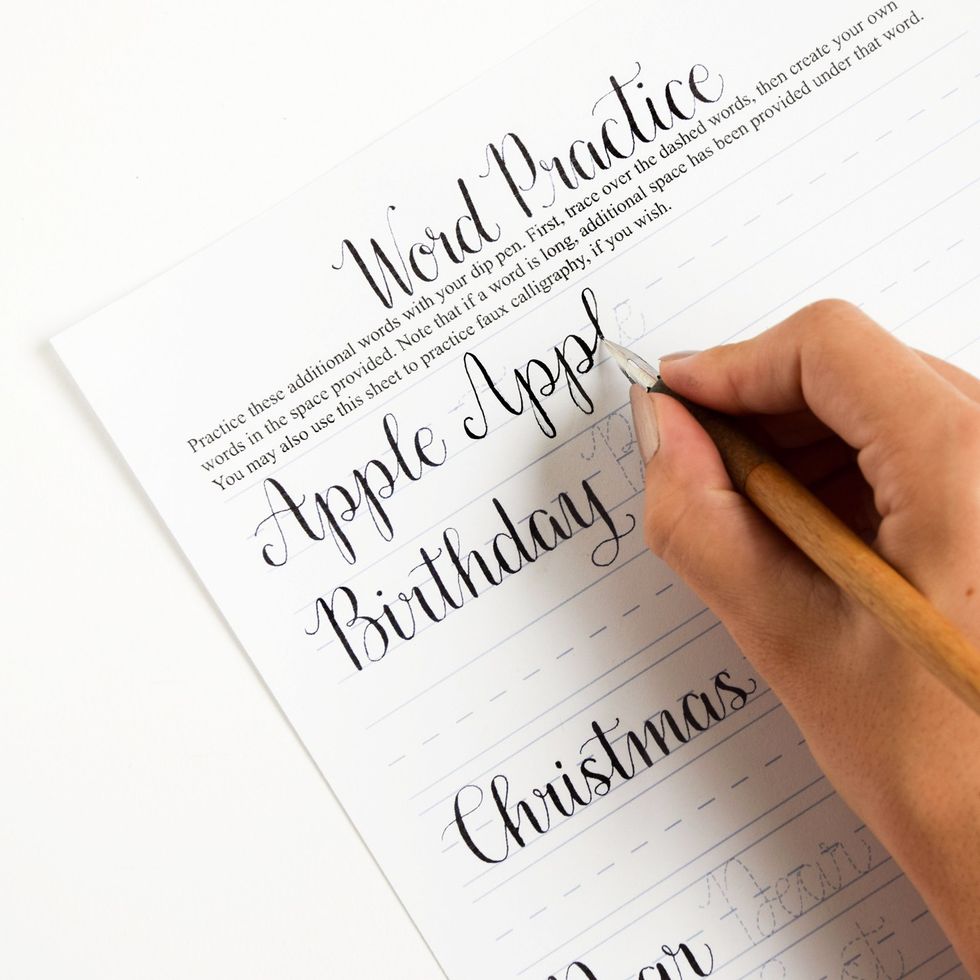 Word Practice
Practice these additional words with your dip pen. First, trace over the dashed words, then create your own
words in the space provided. Note that if a word is long, additional space has been provided under that word.
You may also use this sheet to practice faux calligraphy, if you wish.
Apple Apple
Birthday B
Christmas
Dear Dear